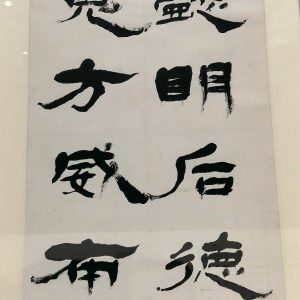 懿明后德
鬼方威布